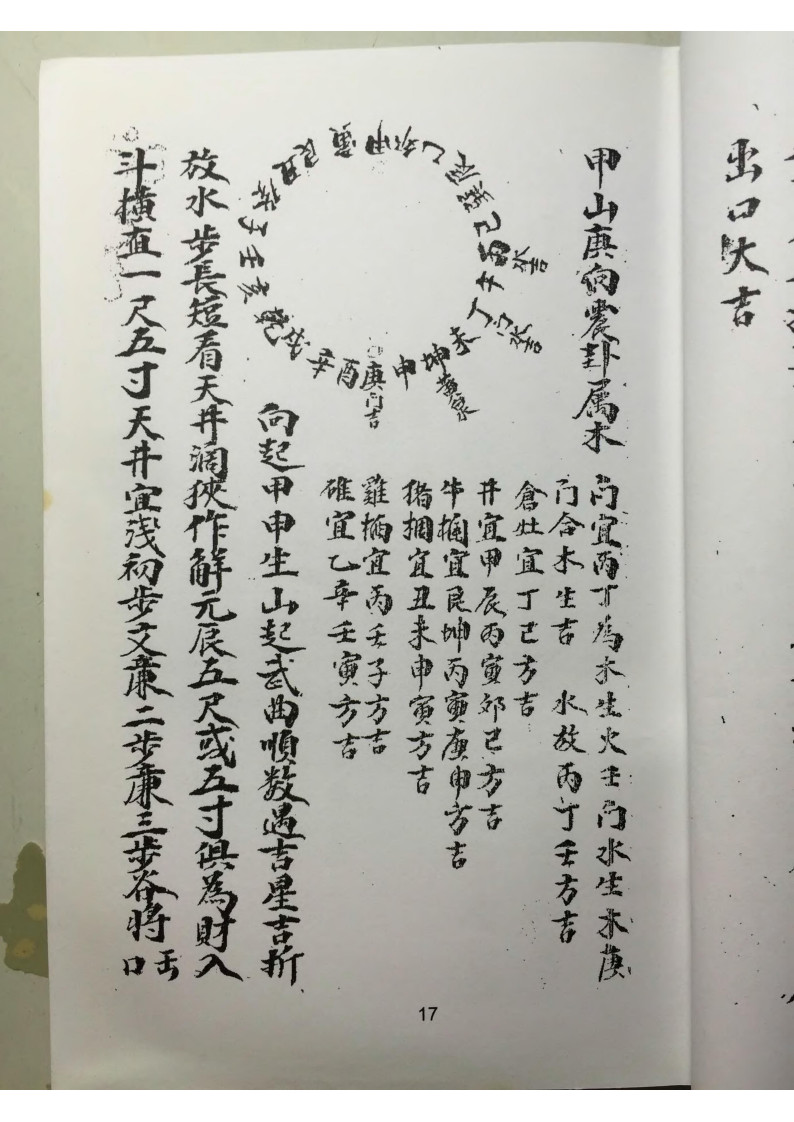 出口大吉
甲山庚向震卦属木
门宜丙丁為木生火壬门水生木庚
门合木生吉　水放丙丁壬方吉
倉灶宜丁己方吉
井宜甲辰丙寅卯己方吉
牛捆宜艮坤丙寅庚申方吉
猪捆宜丑未申寅方吉
雞栖宜丙壬子方吉
碓宜乙辛壬寅方吉
甲卯乙辰巽己丙午丁未坤申庚酉辛戌乾亥壬子癸丑艮寅
水吉
门水吉
黄泉
门吉
向起甲申生山起武曲順数遇吉星吉折
放水步長短看天井濶狹作解元辰五尺或五寸俱為財入
斗横直一尺五寸天井宜浅初步文廉二步廉三步谷將
口
17